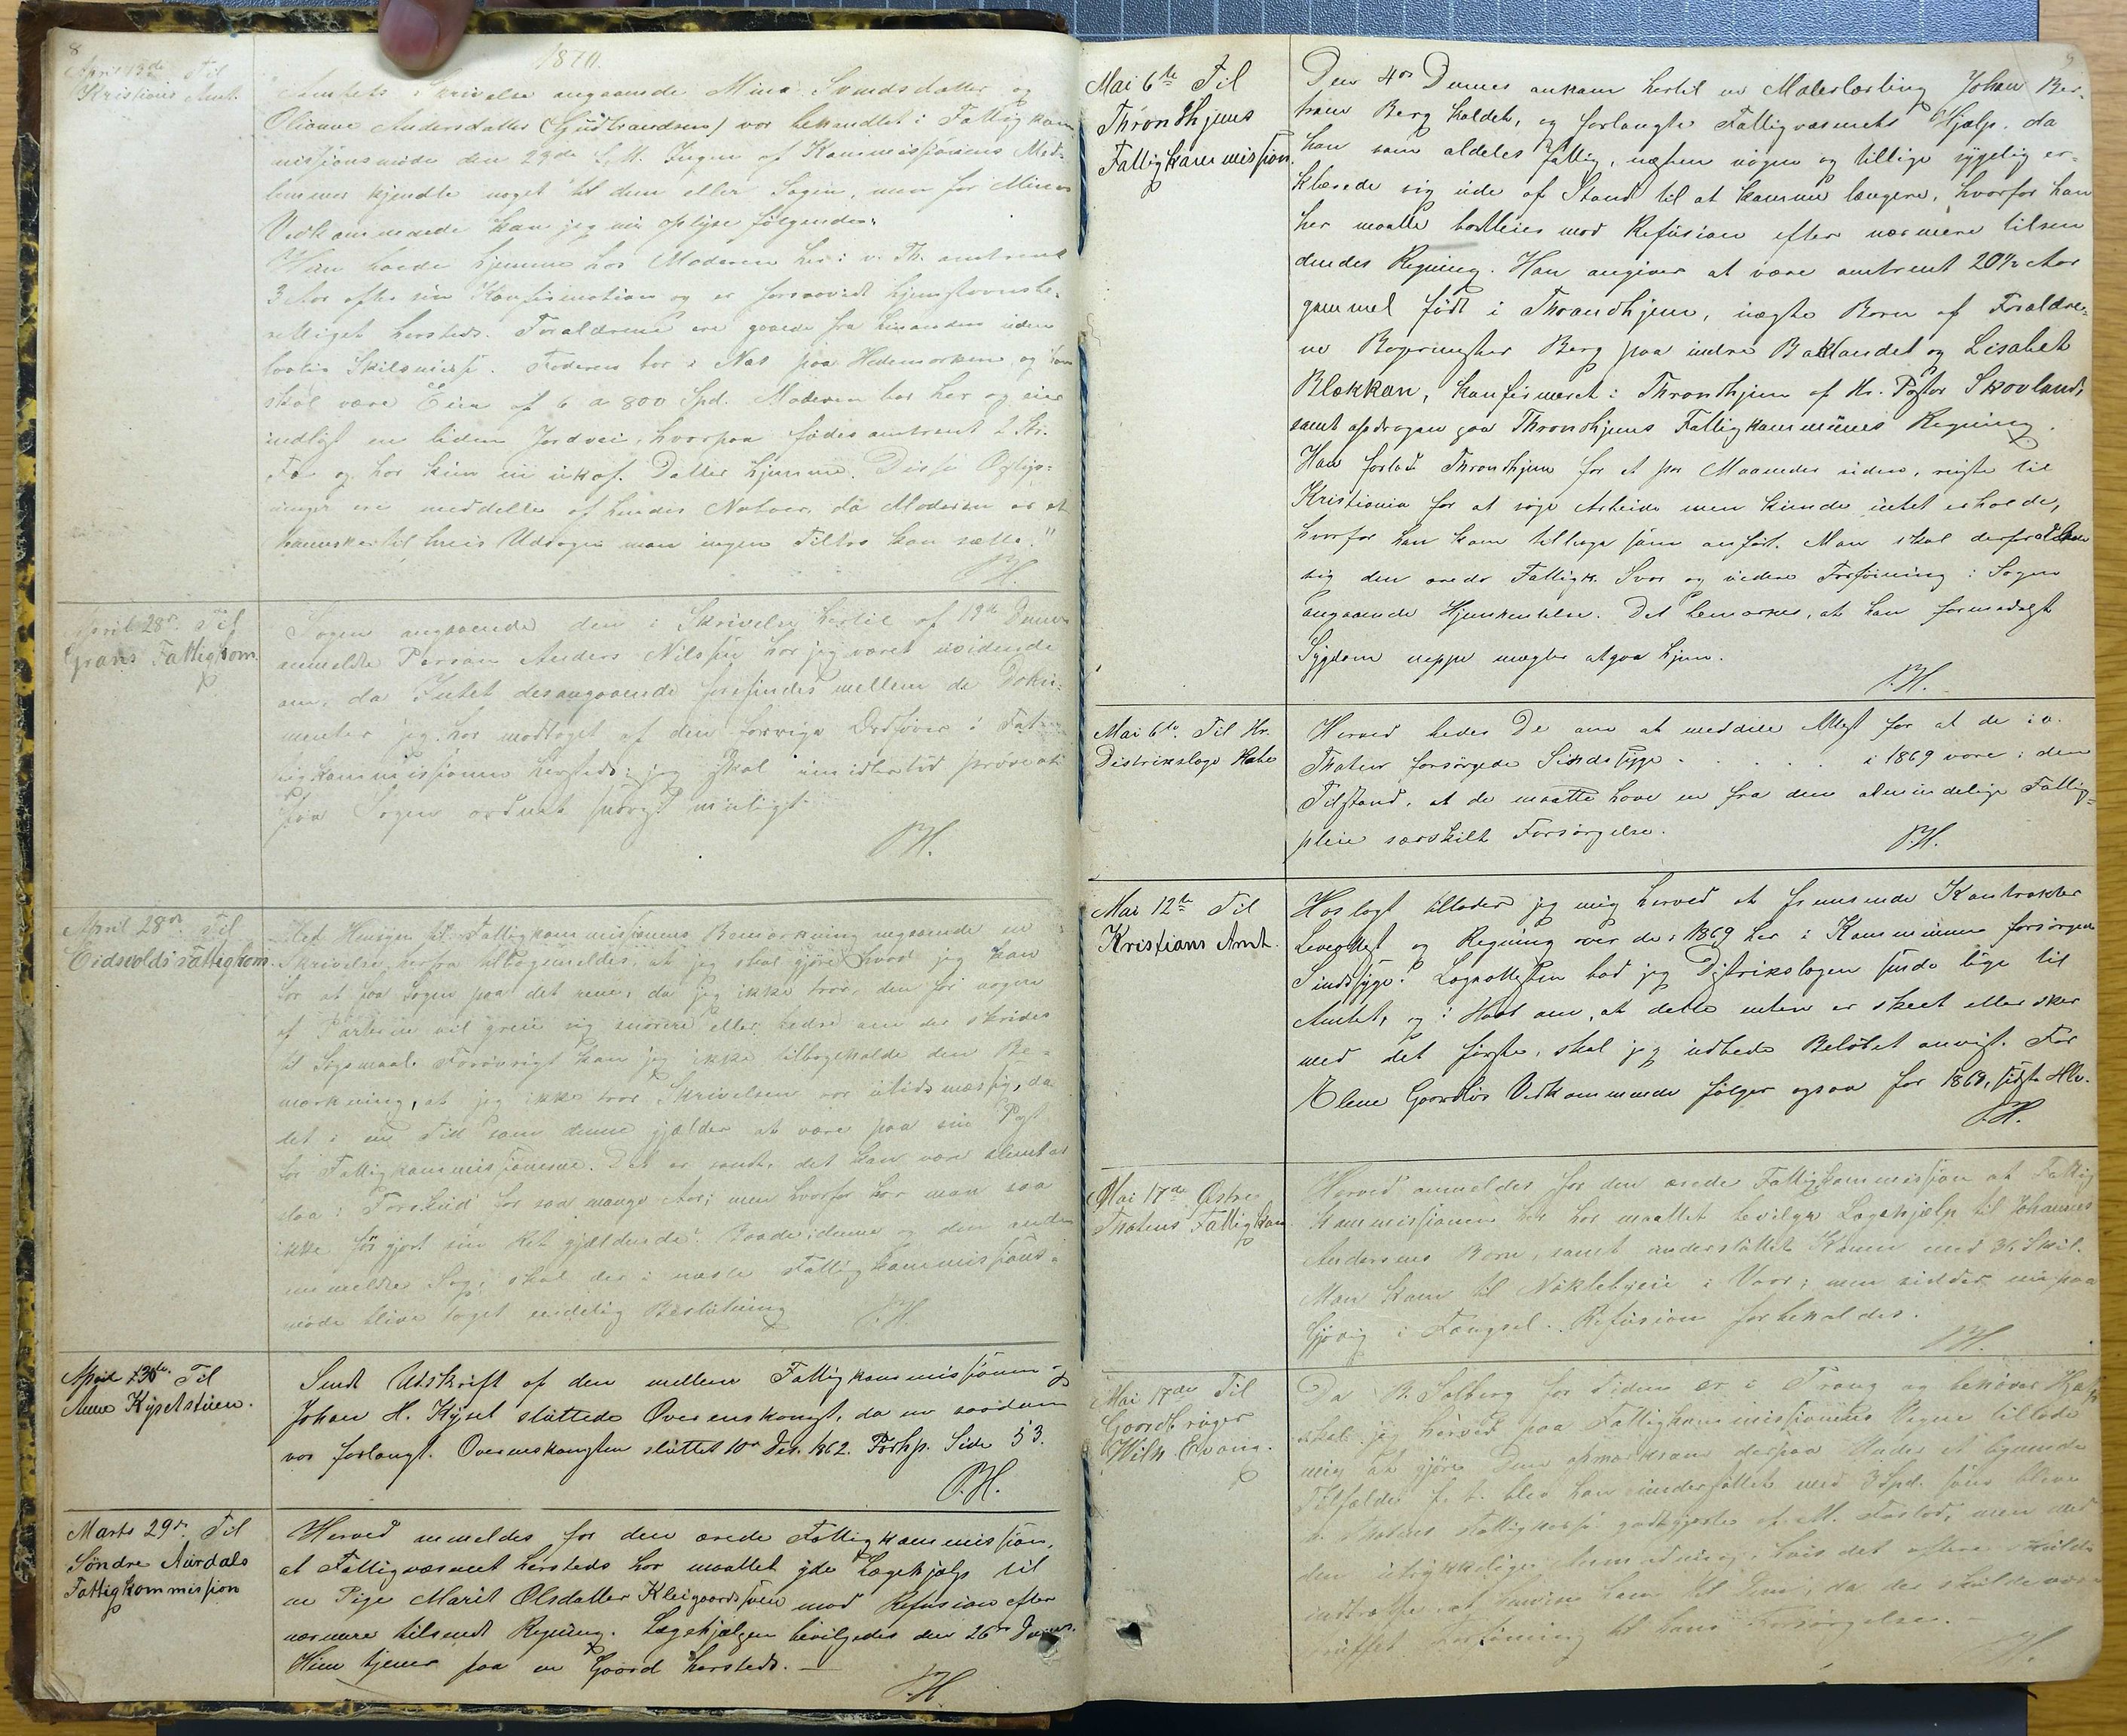 8
1870.
April 13de Til
Kristians Amt.
Amtets Skrivelse angaaende Mina Svendsdatter og
Oliane Andersdatter (Gudbrandsen) var behandlet i Fattigkom
missionsmøde den 29de f. M. Ingen af Kommissionens Med-
lemmer kjendte noget til dem eller Sagen, men for Minas
Vedkommende kan jeg nu oplyse følgende:
Hun havde hjemme hos Moderen her i v. Th. omtrent
3 Aar efter sin Konfirmation og er forsaavidt hjemstavnsbe-
rettiget hersteds. Forældrene ere gaaede fra hinanden uden
lovlig Skilsmisse. Faderen bor i Næs paa Hedemarken og han
skal være Eier af 6 a 800 Spd. Moderen bor her og eier
indligt en liden Jordvei, hvorpaa fødes omtrent 2 Str.
Fæ og har kun en ukof. Datter hjemme. Disse Oplys-
ninger ere meddelte af hendes Naboer, da Moderen er et
Menneske til hvis Udsagn man ingen Tiltro kan sætte."
P.H.
April 28de Til
Grans Fattigkom.
Sagen angaaende den i Skrivelse hertil af 19de Dennes
anmeldte Person Anders Nilssen har jeg været uvidende
om, da Intet desangaaende forefindes mellem de Doku-
menter jeg har modtaget af den forrige Ordfører i Fat-
tigkommissionen hersteds; jeg skal imidlertid prøve at
faa Sagen ordnet snarest muligt.
P.H.
April 28de Til
Eidsvolds Fattigkom.
Med Hensyn til Fattigkommissionens Bemærkning angaaende en
Skrivelse herfra tilbagemeldes, at jeg skal gjøre hvad jeg kan
for at faa Sagen paa det rene, da jeg ikke tror, den for nogen
af Parterne vil greie sig snarere eller bedre om der skrides
til Søgsmaal. Forøvrigt kan jeg ikke tilbageholde den Be-
mærkning, at jeg ikke tror Skrivelsen var utidsmæssig, da
det i en Tid som denne gjælder at være paa sin Post
for Fattigkommissionerne. Det er sandt, det kan være slemt at
staa i Forskud for saa mange Aar; men hvorfor har man saa
ikke før gjort sin Ret gjældende? Baade i denne og den anden
anmeldte Sag skal der i næste Fattigkommissions-
møde blive taget endelig Beslutning
P.H.
April 30te Til
Anne Kyselstuen.
Sendt Udskrift af den mellem Fattigkommissionen og
Johan H. Kysel sluttede Overenskomst, da en saadan
var forlangt. Overenskomsten sluttet 10de Des. 1862. Forhp. Side 53.
P.H.
Marts 29de Til
Søndre Aurdals
Fattigkommission
Herved anmeldes for den ærede Fattigkommission,
at Fattigvæsenet hersteds har maattet yde Lægehjælp til
en Pige Marit Olsdatter Kleigaardssveen mod Refusion efter
nærmere tilsendt Regning. Lægehjælpen bevilgedes den 26de Dennes.
Hun tjener paa en Gaard hersteds. —
P.H.
9
Mai 6te Til
Throndhjems
Fattigkommission.
Den 4de Dennes ankom hertil en Malerlærling Johan Ber-
tram Berg kaldet, og forlangte Fattigvæsenets Hjælp, da
han som aldeles fattig, næsten nøgen og tillige sygelig er-
klærede sig ude af Stand til at komme længere, hvorfor han
her maatte bortleies mod Refusion efter nærmere tilsen
dendes Regning. Han angiver at være omtrent 20½ Aar
gammel født i Throndhjem, uægte Barn af Forældre-
ne Bogermester Berg paa indre Baklandet og Lisabet
Blekkan, konfirmeret i Throndhjem af Hr. Pastor Skovland,
samt opdragen paa Throndhjems Fattigkommunes Regning.
Han forlod Throndhjem for et par Maaneder siden, reiste til
Kristiania for at søge Arbeide men kunde intet erholde,
hvorfor han kom tilbage som anført. Man skal derfor udbede
sig den ærede Fattigk. Svar og videre Forføining i Sagen
angaaende Hjemsendelse. Det bemærkes, at han formedelst
Sygdom neppe mægter at gaa hjem.
P.H.
Mai 6te. Til Hr.
Distriktslæge Rabe
Herved bedes De om at meddele Attest for at de i v.
Thoten forsørgede Sindssyge . . . . . i 1869 vare i den
Tilstand, at de maatte have en fra den almindelige Fattig-
pleie særskilt Forsørgelse.
P.H.
Mai 12te Til
Kristians Amt.
Hoslagt tillader jeg mig herved at fremsende Kontrakter
Leveattest og Regning over de i 1869 her i Kommunen forsørgede
Sindssyge. Lægeattesten bad jeg Distriktslægen sende lige til
Amtet, og i Haab om, at dette enten er skeet eller sker
med det første, skal jeg udbede Beløbet anvist. For
Elene Gaardløs Vedkommende følger ogsaa for 1868, sidste Hlv.
P.H.
Mai 17de Østre
Thotens Fattigkom
Herved anmeldes for den ærede Fattigkommission at Fattig
kommissionen her har maattet bevilge Lægehjælp til Johannes
Andersens Børn, samt understøttet Konen med 36 Skil.
Man kom til Nøklebyeie i Vaar; men sidder nu paa
Gjøvig i Fængsel. Refusion forbeholdes.
P.H.
Mai 17de Til
Gaardbruger
Wilh Evang.
Da B. Solberg for Tiden er i Trang og behøver Hjælp
skal jeg herved paa Fattigkommissionens Vegne tillade
mig at gjøre Dem opmærksom derpaa. Under et lignende
Tilfælde f. A. blev han understøttet med 3 Spd. som bleve
v. Thotens Fattigkasse godtgjorte af M. Fastad, men med
den udtrykkelige Bemærkning, hvis det oftere skulde
indtræffe, at henvise ham til Dem, da der skulde være
truffet Forføining til hans Forsørgelse.
P.H.